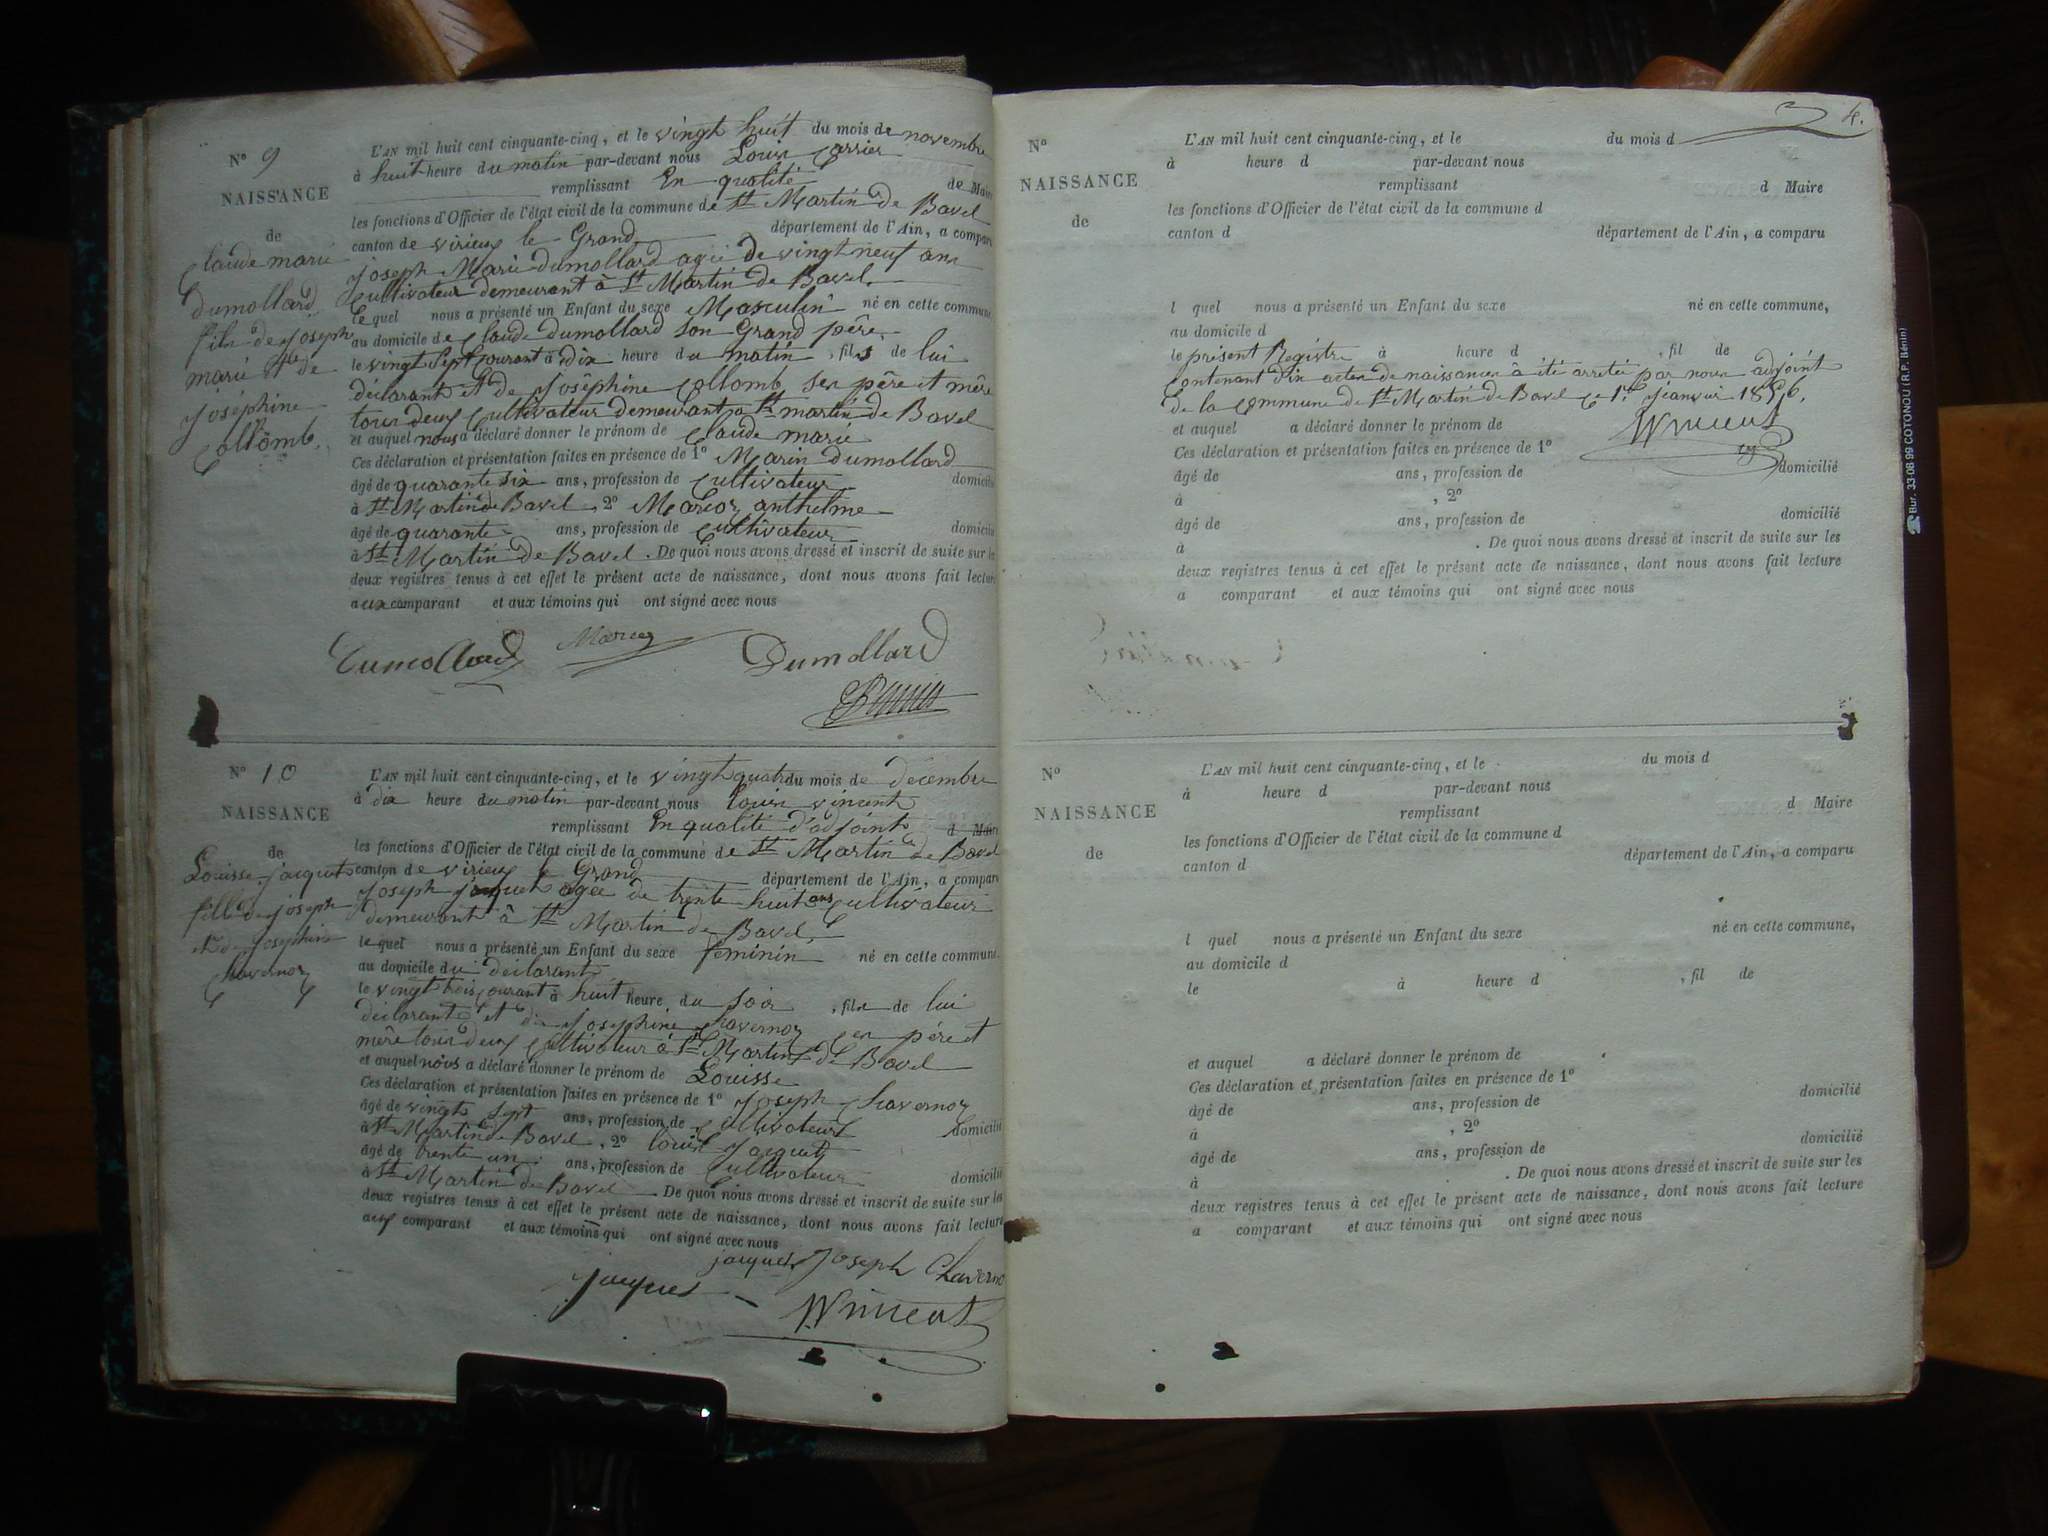 N° 9
NAISSANCE
de
Claude marie
Dumollard
fils de joseph
marie et de
joséphine
Collomb.
L'AN mil huit cent cinquante-cinq, et le vingt huit du mois de novembre
à huit heure du matin par-devant nous Louis Carrier
remplissant En qualité de Maire
les fonctions d'Officier de l'état civil de la commune de St Martin de Bavel
canton de virieux le Grand département de l'Ain, a comparu
joseph Marie Dumollard agé de vingt neuf ans
Cultivateur demeurant à St Martin de Bavel.
le quel nous a présenté un Enfant du sexe Masculin né en cette commune
au domicile de Claude Dumollard son Grand père
le vingt Sept Courant à dix heure du matin, fils de lui
déclarant et de Joséphine Collomb ses père et mère
tous deux Cultivateur demeurant a St martin de Bavel
et auquel nous a déclaré donner le prénom de Claude marie
Ces déclaration et présentation faites en présence de 1° Marin Dumollard
âgé de quarante six ans, profession de Cultivateur domicilié
à St Martin de Bavel, 2° Marcoz anthelme
âgé de quarante ans, profession de Cultivateur domicilié
à St Martin de Bavel. De quoi nous avons dressé et inscrit de suite sur les
deux registres tenus à cet effet le présent acte de naissance, dont nous avons fait lecture
aux comparant et aux témoins qui ont signé avec nous
Dumollard Marcoz Dumollard
N° 10
NAISSANCE
de
Louisse jacquet
fille de joseph
et de josephine
Chavernoz
L'AN mil huit cent cinquante-cinq, et le vingt quatre du mois de decembre
à dix heure du matin par-devant nous Louis vincent
remplissant En qualité d'adjoint d Maire
les fonctions d'Officier de l'état civil de la commune de St Martin de Bavel
canton de virieux le Grand département de l'Ain, a comparu
Joseph jaquet agée de trente huit ans Cultivateur
demeurant à St Martin de Bavel.
le quel nous a présenté un Enfant du sexe feminin né en cette commune.
au domicile du declarant
le vingt trois Courant à huit heure du soir, fille de lui
déclarant et de josephine Chavernoz ses père et
mère tous deux Cultivateur à St Martin de Bavel
et auquel nous a déclaré donner le prénom de Louisse
Ces déclaration et présentation faites en présence de 1° joseph Chavernoz
âgé de vingt Sept ans, profession de Cultivateur domicilié
à St Martin de Bavel, 2° louis Jacquet
âgé de trente un ans, profession de Cultivateur domicilié
à St Martin de Bavel. De quoi nous avons dressé et inscrit de suite sur les
deux registres tenus à cet effet le présent acte de naissance, dont nous avons fait lecture
aux comparant et aux témoins qui ont signé avec nous
jacquet Joseph Chaverno
jaques Vincent
4.
N°
NAISSANCE
de
L'AN mil huit cent cinquante-cinq, et le du mois d
à heure d par-devant nous
remplissant d Maire
les fonctions d'Officier de l'état civil de la commune d
canton d département de l'Ain, a comparu
l quel nous a présenté un Enfant du sexe né en cette commune,
au domicile d
le présent Registre à heure d , fil de
Contenant dix actes de naissances à été arretée par nous adjoint
de la Commune de St Martin de Bavel ce 1er janvier 1856.
et auquel a déclaré donner le prénom de Vincent
Ces déclaration et présentation faites en présence de 1°
âgé de ans, profession de domicilié
à , 2°
âgé de ans, profession de domicilié
à . De quoi nous avons dressé et inscrit de suite sur les
deux registres tenus à cet effet le présent acte de naissance, dont nous avons fait lecture
a comparant et aux témoins qui ont signé avec nous
N°
NAISSANCE
de
L'AN mil huit cent cinquante-cinq, et le du mois d
à heure d par-devant nous
remplissant d Maire
les fonctions d'Officier de l'état civil de la commune d
canton d département de l'Ain, a comparu
l quel nous a présenté un Enfant du sexe né en cette commune,
au domicile d
le à heure d , fil de
et auquel a déclaré donner le prénom de
Ces déclaration et présentation faites en présence de 1°
âgé de ans, profession de domicilié
à , 2°
âgé de ans, profession de domicilié
à . De quoi nous avons dressé et inscrit de suite sur les
deux registres tenus à cet effet le présent acte de naissance, dont nous avons fait lecture
a comparant et aux témoins qui ont signé avec nous
Bur. 33-06 99 COTONOU (R.P. Bénin)